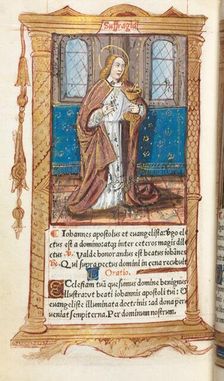 Suffragia.
Iohannes apostolus et euangelista: virgo elec
tus est a domino atq; inter ceteros magis dilect
us. Valde honorandus est beatus iohānes
Qui supra pectus domini in cena recubuit
Oratio.
Ecclesiam tuā quesumus domine benignus
illustra: vt beati iohannis apostoli tui &
euangeliste illuminata doctrinis: ad dona per
ueniat sempiterna. Per dominum nostrum.